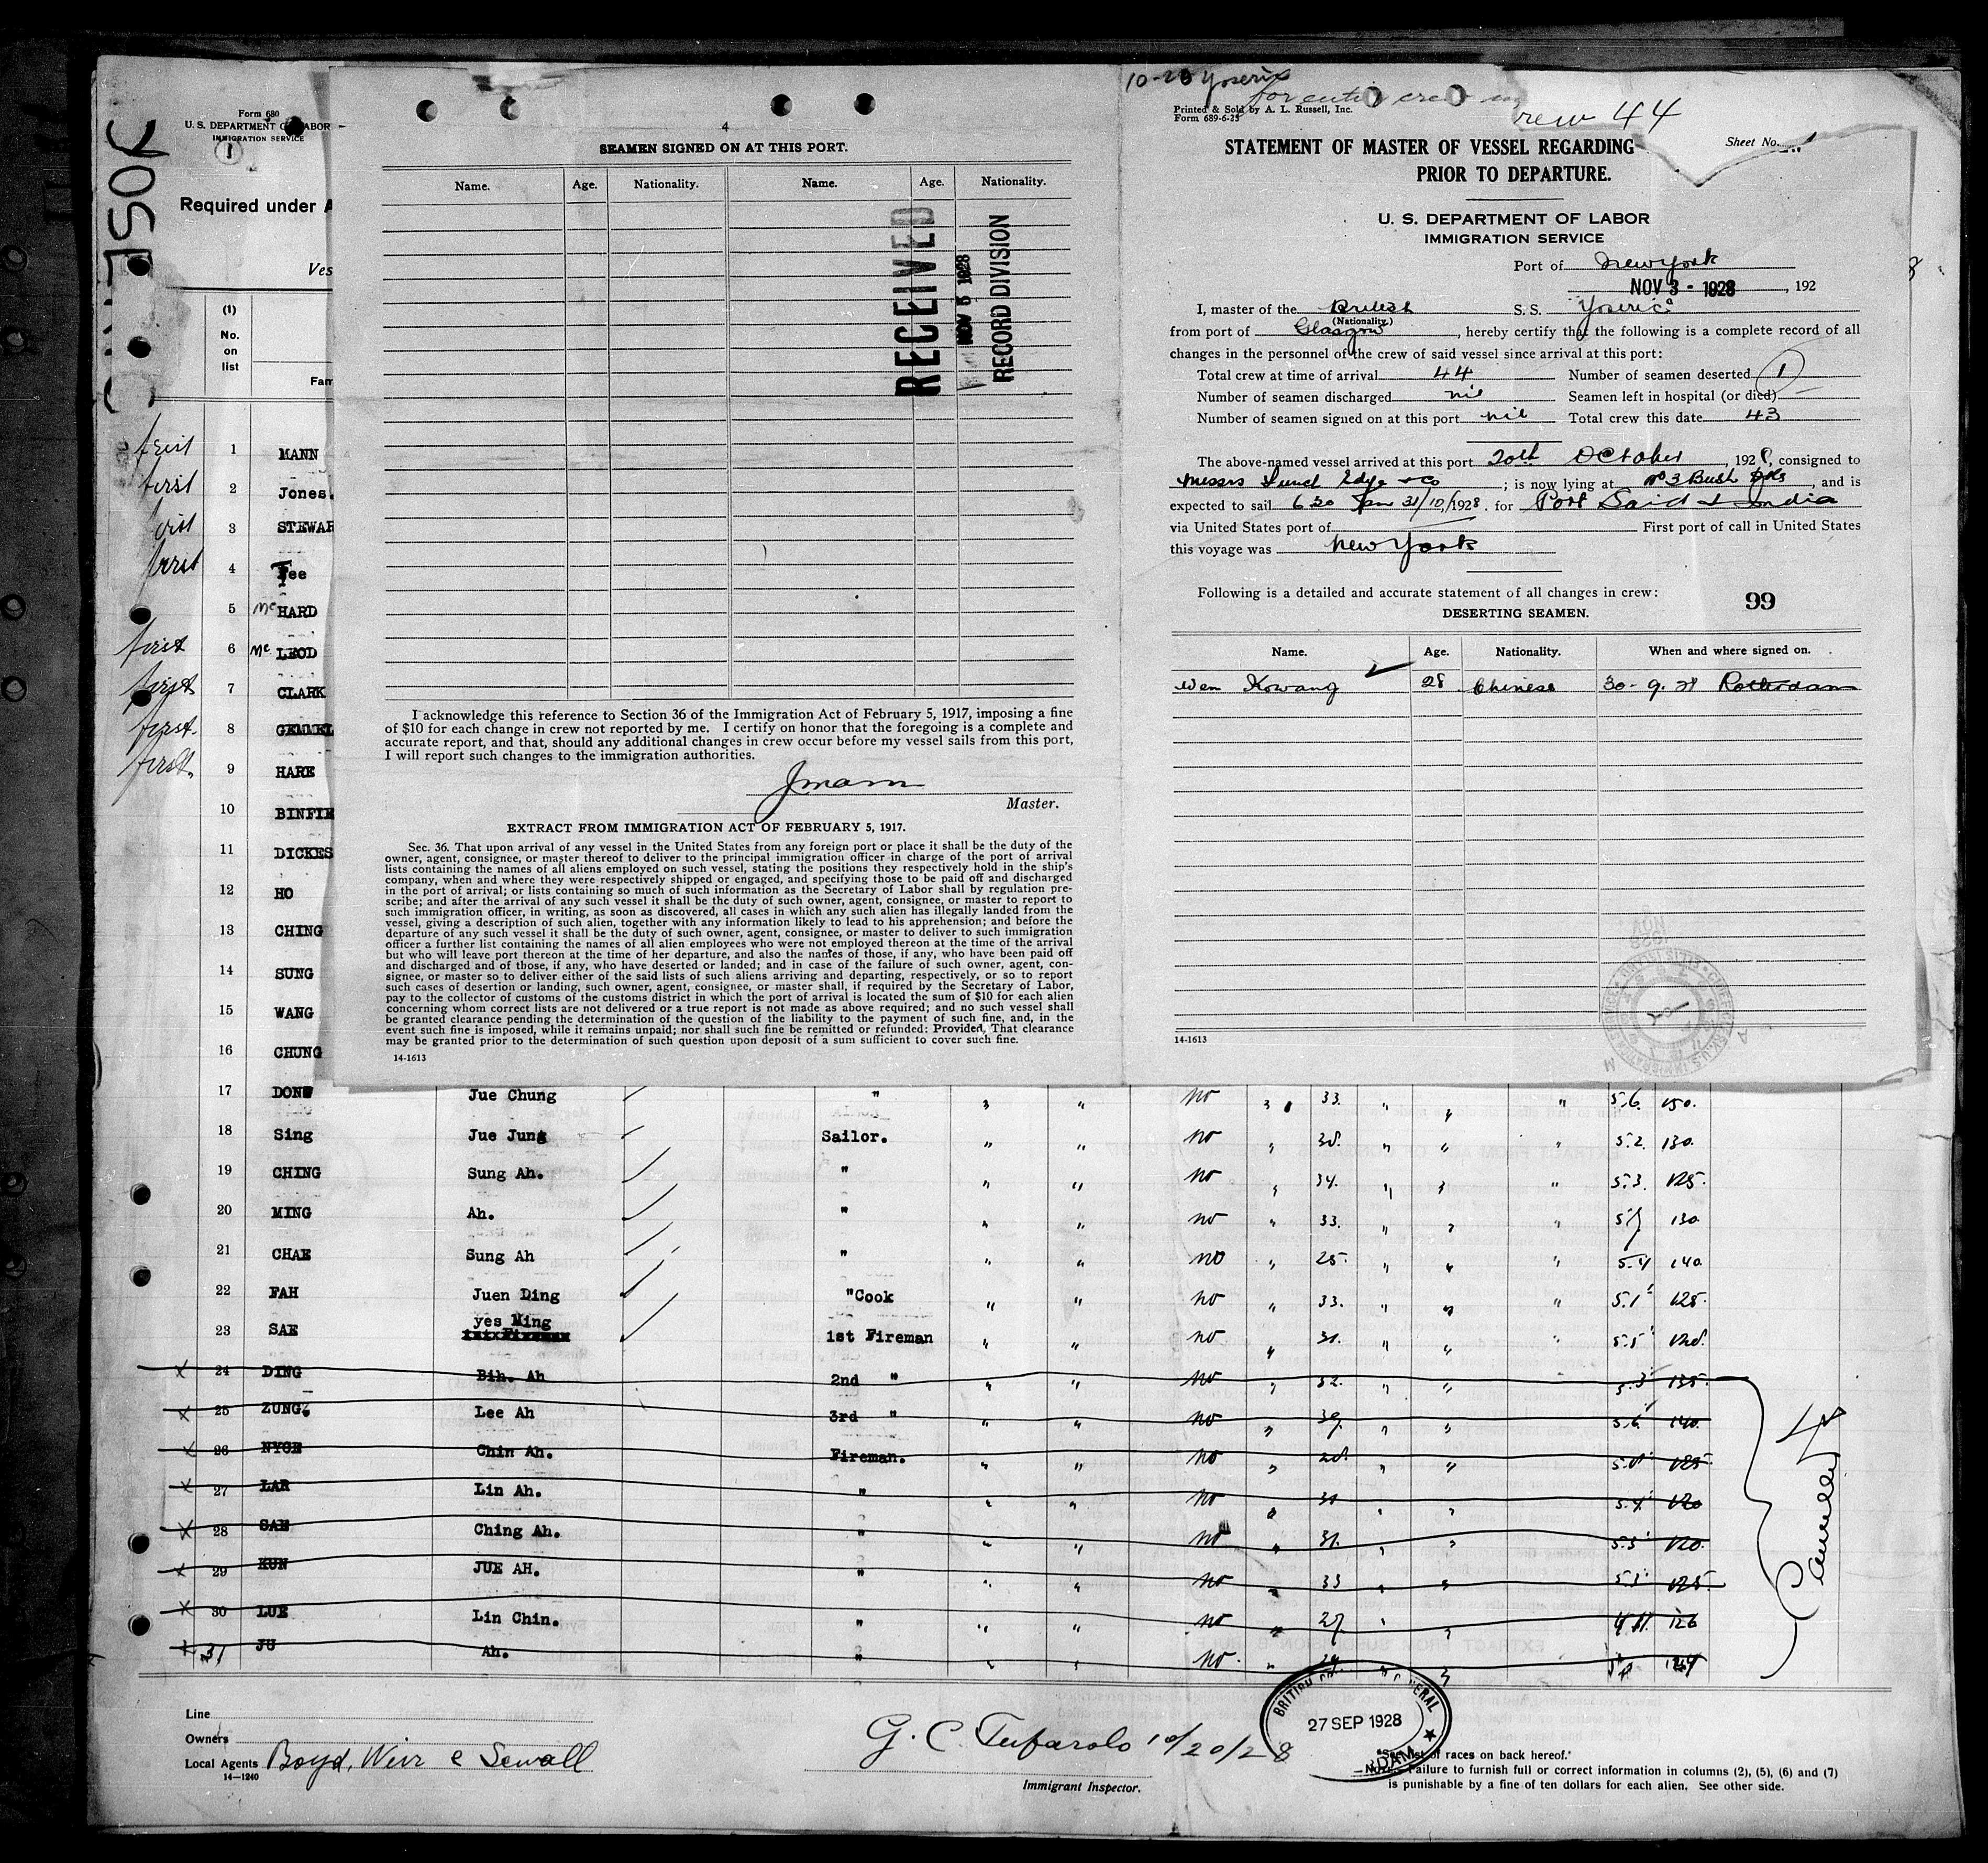 Form 680
U. S. DEPARTMENT OF LABOR
IMMIGRATION SERVICE
1
Required under A
Ves
(1)
No.
on
list
Fam
first 1 MANN
first 2 Jones.
first 3 STEWAR
first 4 Fee
5 Mc HARD
first 6 Mc LEOD
first 7 CLARK
first. 8 GEMMEL
first. 9 HARE
10 BINFIE
11 DICKES
12 HO
13 CHING
14 SUNG
15 WANG
16 CHUNG
4
SEAMEN SIGNED ON AT THIS PORT.
Name. Age. Nationality. Name. Age. Nationality.
RECEIVED
NOV 5 1928
RECORD DIVISION
I acknowledge this reference to Section 36 of the Immigration Act of February 5, 1917, imposing a fine
of $10 for each change in crew not reported by me. I certify on honor that the foregoing is a complete and
accurate report, and that, should any additional changes in crew occur before my vessel sails from this port,
I will report such changes to the immigration authorities.
JMann
Master.
EXTRACT FROM IMMIGRATION ACT OF FEBRUARY 5, 1917.
Sec. 36. That upon arrival of any vessel in the United States from any foreign port or place it shall be the duty of the
owner, agent, consignee, or master thereof to deliver to the principal immigration officer in charge of the port of arrival
lists containing the names of all aliens employed on such vessel, stating the positions they respectively hold in the ship's
company, when and where they were respectively shipped or engaged, and specifying those to be paid off and discharged
in the port of arrival; or lists containing so much of such information as the Secretary of Labor shall by regulation pre-
scribe; and after the arrival of any such vessel it shall be the duty of such owner, agent, consignee, or master to report to
such immigration officer, in writing, as soon as discovered, all cases in which any such alien has illegally landed from the
vessel, giving a description of such alien, together with any information likely to lead to his apprehension; and before the
departure of any such vessel it shall be the duty of such owner, agent, consignee, or master to deliver to such immigration
officer a further list containing the names of all alien employees who were not employed thereon at the time of the arrival
but who will leave port thereon at the time of her departure, and also the names of those, if any, who have been paid off
and discharged and of those, if any, who have deserted or landed; and in case of the failure of such owner, agent, con-
signee, or master so to deliver either of the said lists of such aliens arriving and departing, respectively, or so to report
such cases of desertion or landing, such owner, agent, consignee, or master shall, if required by the Secretary of Labor,
pay to the collector of customs of the customs district in which the port of arrival is located the sum of $10 for each alien
concerning whom correct lists are not delivered or a true report is not made as above required; and no such vessel shall
be granted clearance pending the determination of the question of the liability to the payment of such fine, and, in the
event such fine is imposed, while it remains unpaid; nor shall such fine be remitted or refunded: Provided, That clearance
may be granted prior to the determination of such question upon deposit of a sum sufficient to cover such fine.
14-1613
10-20 Yoseric
Printed & Sold by A. L. Russell, Inc.
Form 689-6-25
rew 44
Sheet No.
STATEMENT OF MASTER OF VESSEL REGARDING
PRIOR TO DEPARTURE.
U. S. DEPARTMENT OF LABOR
IMMIGRATION SERVICE
Port of New York
NOV 3 - 1928, 192
I, master of the British S. S. Yoseric
(Nationality.)
from port of Glasgow, hereby certify that the following is a complete record of all
changes in the personnel of the crew of said vessel since arrival at this port:
Total crew at time of arrival 44 Number of seamen deserted 1
Number of seamen discharged nil Seamen left in hospital (or died)
Number of seamen signed on at this port nil Total crew this date 43
The above-named vessel arrived at this port 20th October, 1928, consigned to
Messrs Funch Edye & Co; is now lying at No 3 Bush Dks, and is
expected to sail 6 30 pm 31/10/1928. for Port Said & India
via United States port of First port of call in United States
this voyage was New York
Following is a detailed and accurate statement of all changes in crew:
99
DESERTING SEAMEN.
Name. Age. Nationality. When and where signed on.
Wen Kowang 28 Chinese 30-9-28 Rotterdam
14-1613
17 DONW Jue Chung " " " no " 33. " " " 5.6. 150.
18 Sing Jue Jung Sailor. " " no " 38. " " " 5.2 130.
19 CHING Sung Ah. " " " no " 34. " " " 5.3. 125.
20 MING Ah. " " " no " 33. " " " 130.
21 CHAE Sung Ah " " " no " 25. " " " 5.4 140.
22 FAH Juen Ding "Cook " " no " 33. " " " 5.1 125.
yes Ming
23 SAE 1st Fireman " " no " 31. " " 5.5 128.
24 DING Bih. Ah 2nd " " " no " 32. " " 5.3 135.
25 ZUNG. Lee Ah 3rd " " " no " 39. " " 5.6 140.
26 NYOE Chin Ah. Fireman. " " no " 28. " " 125
27 LAR Lin Ah. " " " no " 31 " " 5.4 120
28 SAE Ching Ah. " " " no " 31. " " 5.3 120.
29 KUN JUE AH. " " " no " 33 " " 5.3 125.
30 LUE Lin Chin. " " " no " 27. " " 126
31 JU Ah. " " " no. " " "
Cancelled
Line
Owners
Local Agents Boyd, Weir & Sewall
14-1240
G. C. Tufarolo 10/20/28
Immigrant Inspector.
27 SEP 1928
*See list of races on back hereof.
NOTE. Failure to furnish full or correct information in columns (2), (5), (6) and (7)
is punishable by a fine of ten dollars for each alien. See other side.